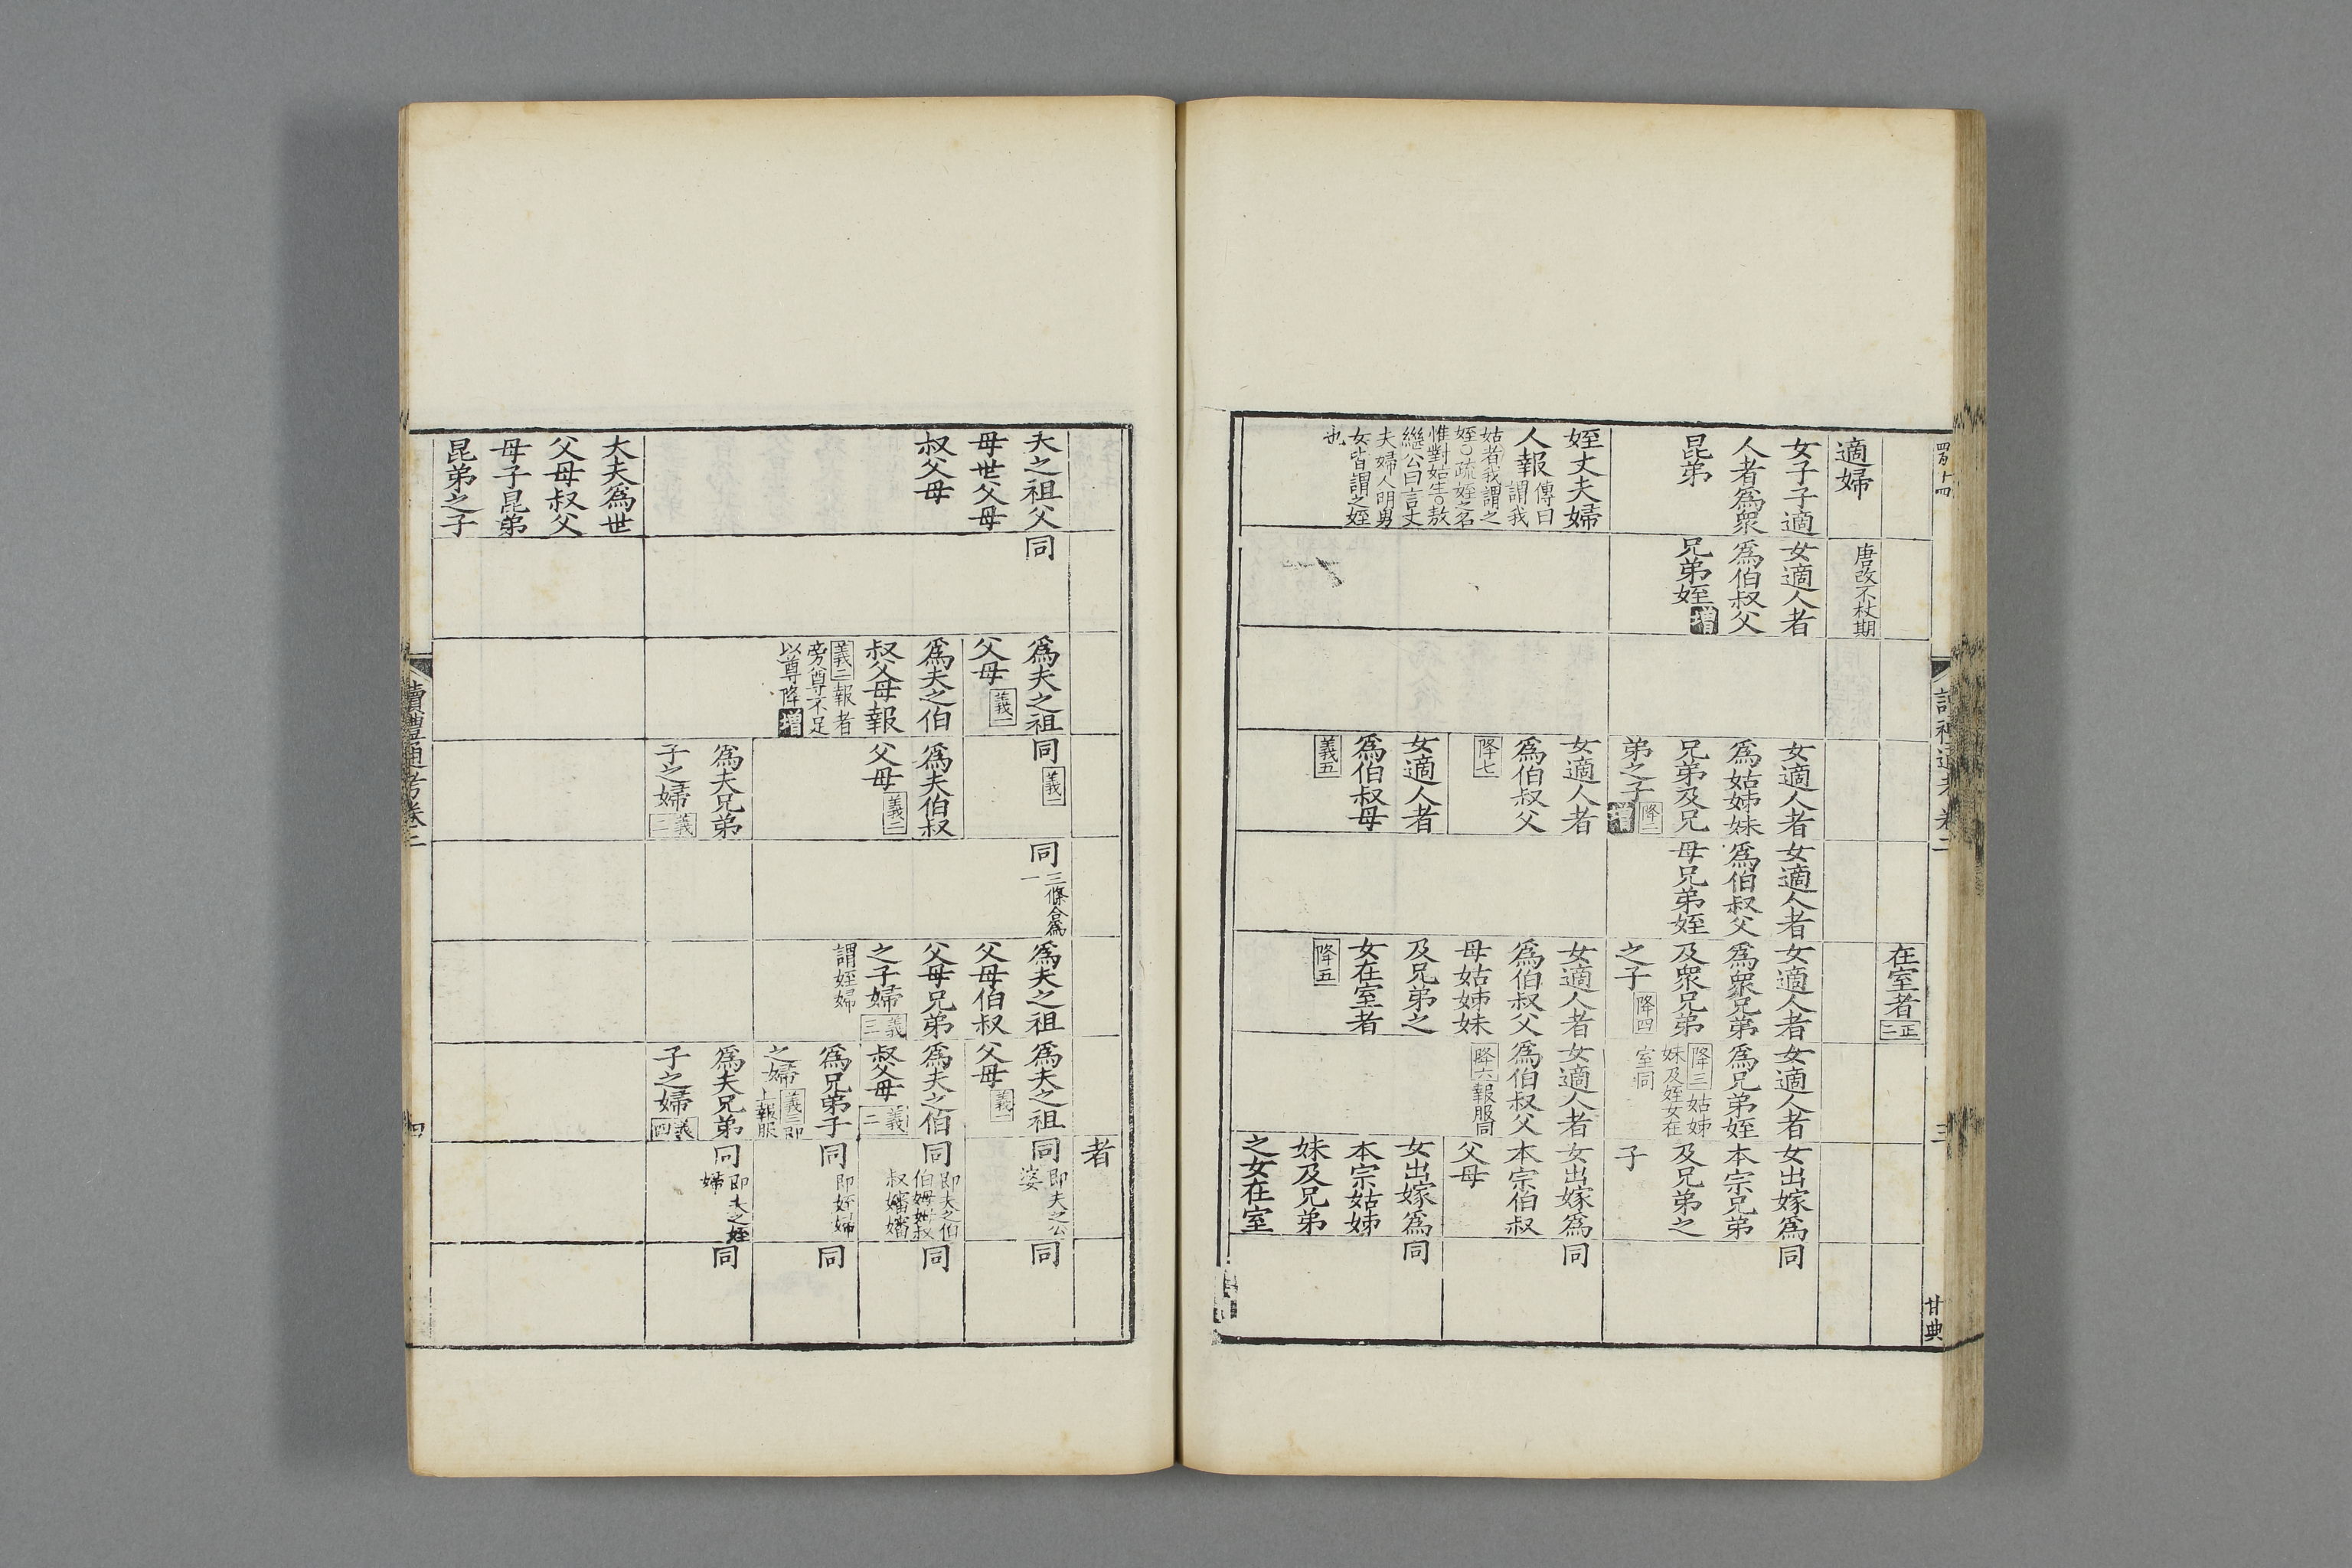 在室者
正二
適婦
唐改不杖期
女子子適
人者爲衆
昆弟
女適人者
爲伯叔父
兄弟姪
增
女適人者
爲姑姊妹
兄弟及兄
弟之子
降二
增
女適人者
爲伯叔父
母兄弟姪
女適人者
爲衆兄弟
及衆兄弟
之子
降四
女適人者
爲兄弟姪
降三姑姊
妹及姪女在
室同
女出嫁爲
本宗兄弟
及兄弟之
子
同
姪丈夫婦
人報
傳曰
謂我
姑者我謂之
姪○疏姪之名
惟對姑生○敖
繼公曰言丈
夫婦人明男
女皆謂之姪
也
女適人者
爲伯叔父
降七
女適人者
爲伯叔父
母姑姊妹
及兄弟之
女在室者
降五
女適人者
爲伯叔父
降六報服同
女出嫁爲
本宗伯叔
父母
同
女適人者
爲伯叔母
義五
女出嫁爲
本宗姑姊
妹及兄弟
之女在室
同
三
甘典
者
夫之祖父
母世父母
叔父母
同
爲夫之祖
父母
義一
同
義一
同
三條合爲
一
爲夫之祖
父母伯叔
父母兄弟
之子婦
義三
謂姪婦
爲夫之祖
父母
義一
同
即夫之公
婆
同
爲夫之伯
叔父母報
義二報者
旁尊不足
以尊降
增
爲夫伯叔
父母
義二
爲夫之伯
叔父母
義二
同
即夫之伯
伯姆姆叔
叔嬸嬸
同
爲兄弟子
之婦
義三即
上報服
同
即姪婦
同
爲夫兄弟
子之婦
義三
爲夫兄弟
子之婦
義四
同
即夫之姪
婦
同
大夫爲世
父母叔父
母子昆弟
昆弟之子
讀禮通考卷二
四